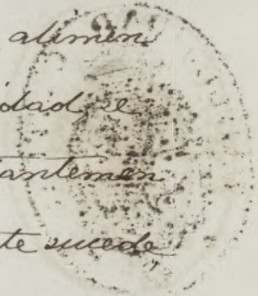 alimen
idad, se
antemen
te sucede